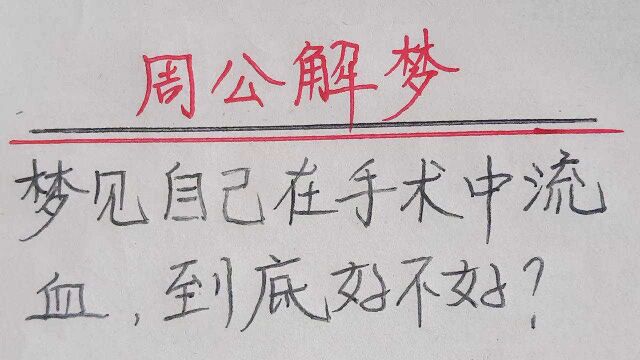 周公解梦
梦见自己在手术中流
血,到底好不好?